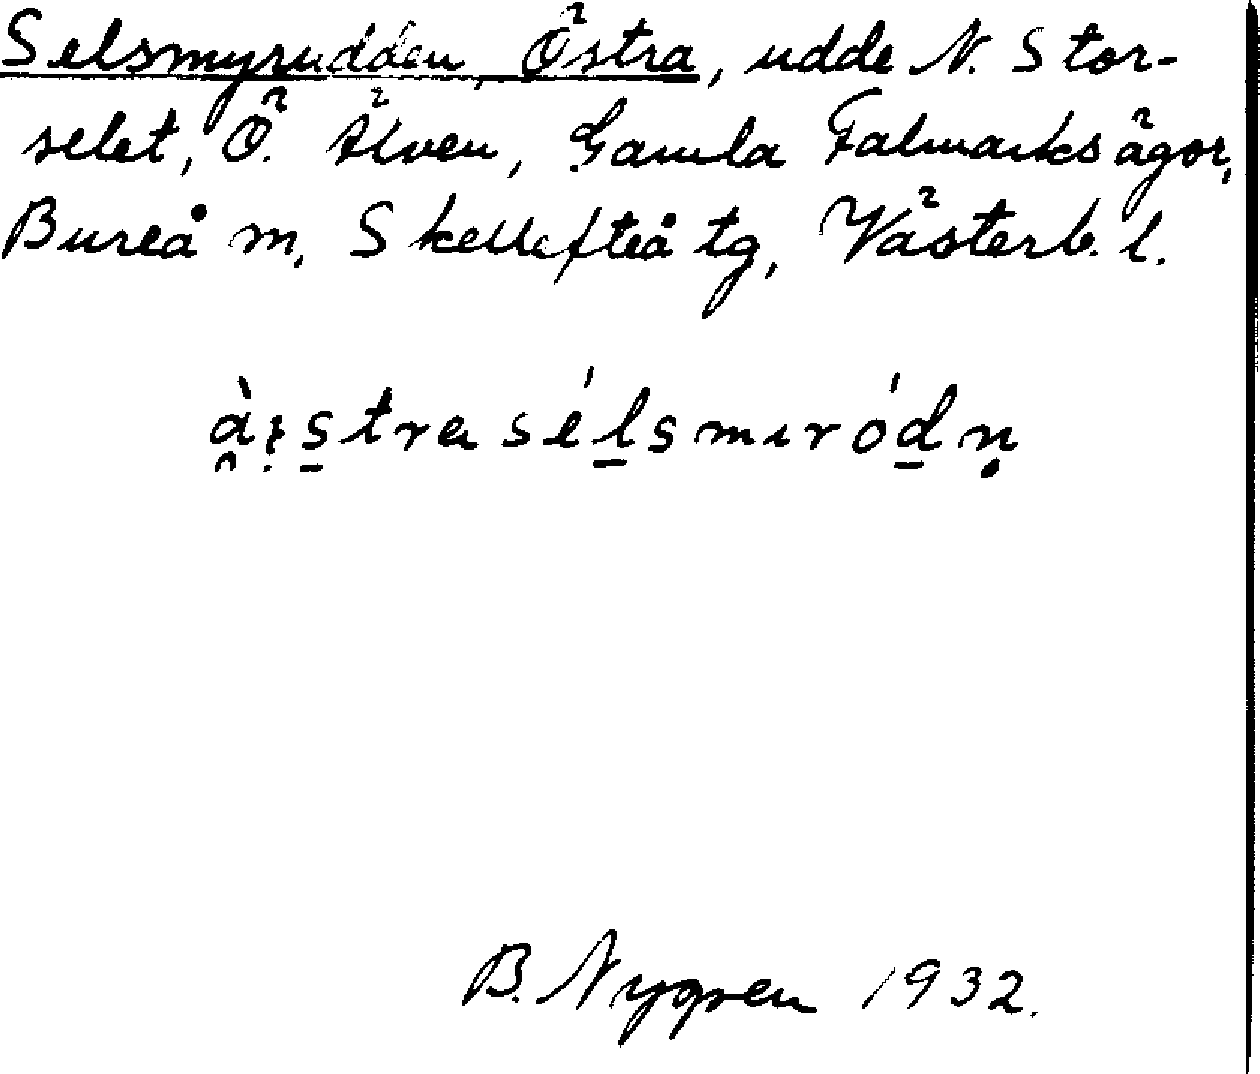 Selsmyrudden, Östra, udde N. Stor-
selet, Ö. Älven, Gamla Falmarks ägor,
Bureå m, Skellefteå tg, Västerb. l.
B. Nygren 1932.